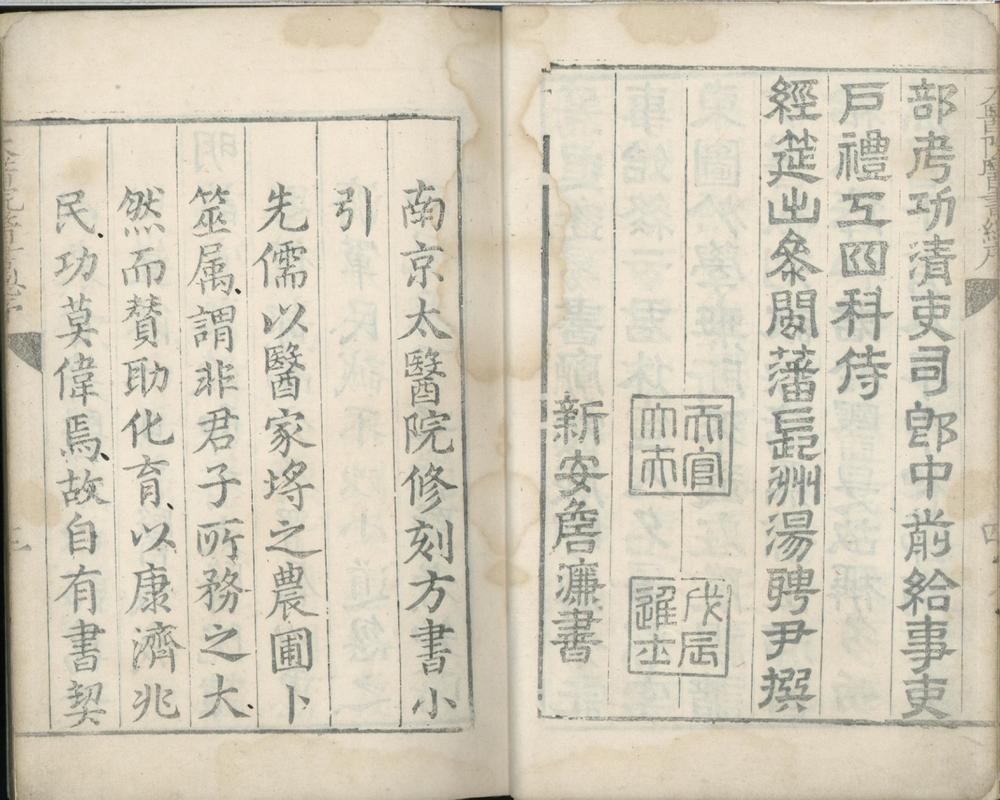 部考功清吏司郎中前給事吏
戶禮工四科侍
經筵出叅閩藩長洲湯聘尹撰
天官
大夫
戊辰
進士
新安詹濂書
南京太醫院修刻方書小
引
先儒以醫家埒之農圃卜
筮属謂非君子所務之大
然而贊助化育以康濟兆
民功莫偉焉故自有書契